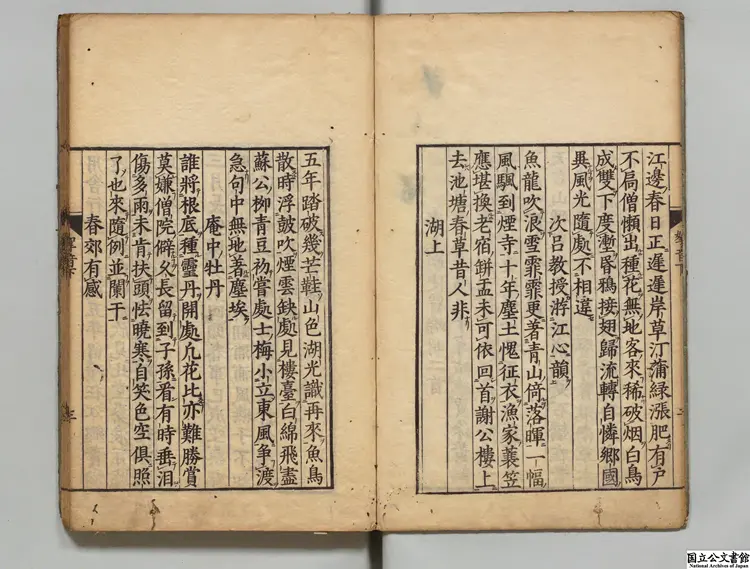 江邊春日正遲遲岸草汀蒲綠漲肥有戸
不扃僧懶出種花無地客來稀破烟白鳥
成雙下度壍昏鴉接翅歸流轉自憐鄉國
異風光隨處不相違
次呂教授游江心韻
魚龍吹浪雪霏霏更著青山倚落暉一幅
風颿到煙寺十年塵土愧征衣漁家蓑笠
應堪換老宿餅盂未可依回首謝公樓上
去池塘春草昔人非
湖上
五年踏破幾芒鞋山色湖光識再來魚鳥
散時浮鼓吹煙雲缺處見樓臺白綿飛盡
蘇公柳青豆初嘗處士梅小立東風爭渡
急句中無地著塵埃
庵中牡丹
誰將根底種靈丹開處凡花比亦難勝賞
莫嫌僧院僻久長留到子孫看有時垂泪
傷多雨未肯扶頭怯曉寒自笑色空俱照
了也來隨例並闌干
春郊有感
国立公文書館
National Archives of Japan